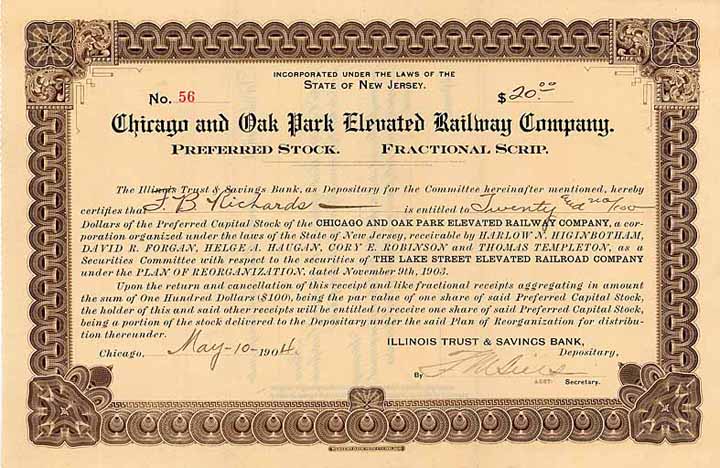 INCORPORATED UNDER THE LAWS OF THE
STATE OF NEW JERSEY.
No. 56 $20.00
Chicago and Oak Park Elevated Railway Company.
PREFERRED STOCK. FRACTIONAL SCRIP.
The Illinois Trust & Savings Bank, as Depositary for the Committee hereinafter mentioned, hereby
certifies that F. B. Richards is entitled to Twenty and no/100
Dollars of the Preferred Capital Stock of the CHICAGO AND OAK PARK ELEVATED RAILWAY COMPANY, a cor-
poration organized under the laws of the State of New Jersey, receivable by HARLOW N. HIGINBOTHAM,
DAVID R. FORGAN, HELGE A. HAUGAN, CORY E. ROBINSON and THOMAS TEMPLETON, as a
Securities Committee with respect to the securities of THE LAKE STREET ELEVATED RAILROAD COMPANY
under the PLAN OF REORGANIZATION, dated November 9th, 1903.
Upon the return and cancellation of this receipt and like fractional receipts aggregating in amount
the sum of One Hundred Dollars ($100), being the par value of one share of said Preferred Capital Stock,
the holder of this and said other receipts will be entitled to receive one share of said Preferred Capital Stock,
being a portion of the stock delivered to the Depositary under the said Plan of Reorganization for distribu-
tion thereunder.
Chicago, May-10-1904. ILLINOIS TRUST & SAVINGS BANK,
Depositary,
By
ASST. Secretary.